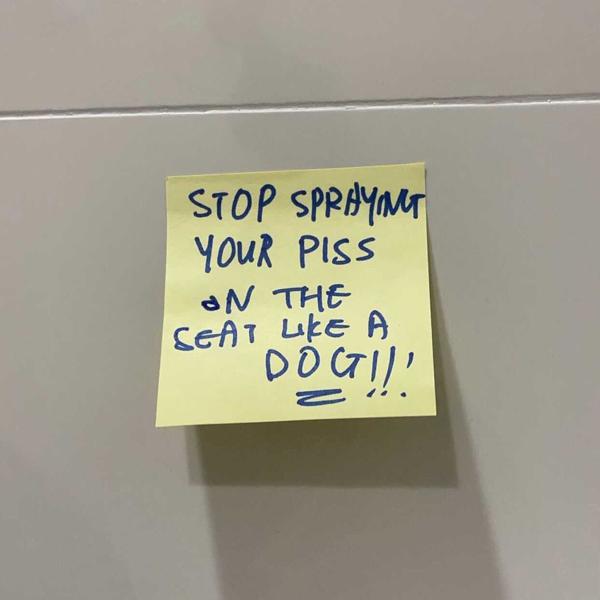 STOP SPRAYING
YOUR PISS
ON THE
SEAT LIKE A
DOG!!!